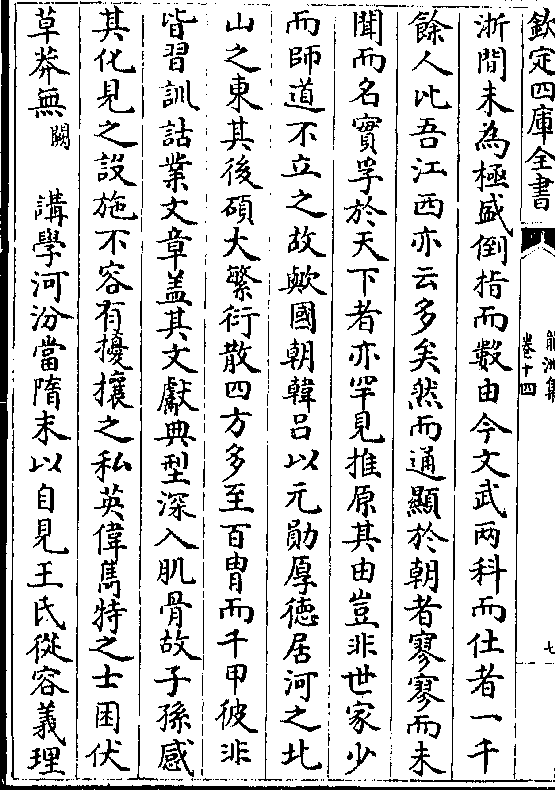 欽定四庫全書
龍洲集
卷十四
七
浙間未為極盛倒指而數由今文武两科而仕者一千
餘人比吾江西亦云多矣然而通顯於朝者寥寥而未
聞而名實孚於天下者亦罕見推原其由豈非世家少
而師道不立之故歟國朝韓吕以元勛厚徳居河之北
山之東其後碩大繁衍散四方多至百胄而千甲彼非
皆習訓詁業文章盖其文獻典型深入肌骨故子孫感
其化見之設施不容有擾攘之私英偉雋特之士困伏
草莽無闕講學河汾當隋末以自見王氏從容義理